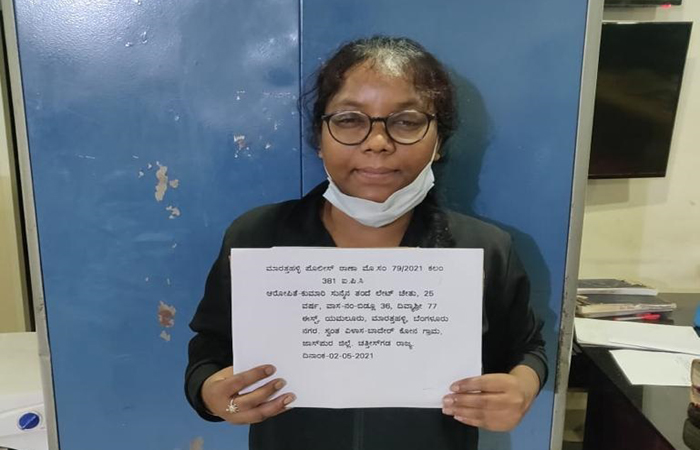 ಮಾರತ್ತಹಳ್ಳಿ ಪೊಲೀಸ್ ಠಾಣಾ ಮೊ.ಸಂ 79/2021 ಕಲಂ
381 ಐ.ಪಿ.ಸಿ
ಆರೋಪಿತೆ-ಕುಮಾರಿ ಸುನೈನ ತಂದೆ ಲೇಟ್ ಚೇತು, 25
ವರ್ಷ, ವಾಸ-ನಂ-ಬಿಡ್ಲೂ 36, ದಿವ್ಯಾಶ್ರೀ 77
ಈಸ್ಟ್, ಯಮಲೂರು, ಮಾರತ್ತಹಳ್ಳಿ, ಬೆಂಗಳೂರು
ನಗರ. ಸ್ವಂತ ವಿಳಾಸ-ಬಾದೇರ್ ಕೋನ ಗ್ರಾಮ,
ಜಾಸ್‌ಪುರ ಜಿಲ್ಲೆ, ಚತ್ತೀಸ್‌ಗಡ ರಾಜ್ಯ
ದಿನಾಂಕ-02-05-2021